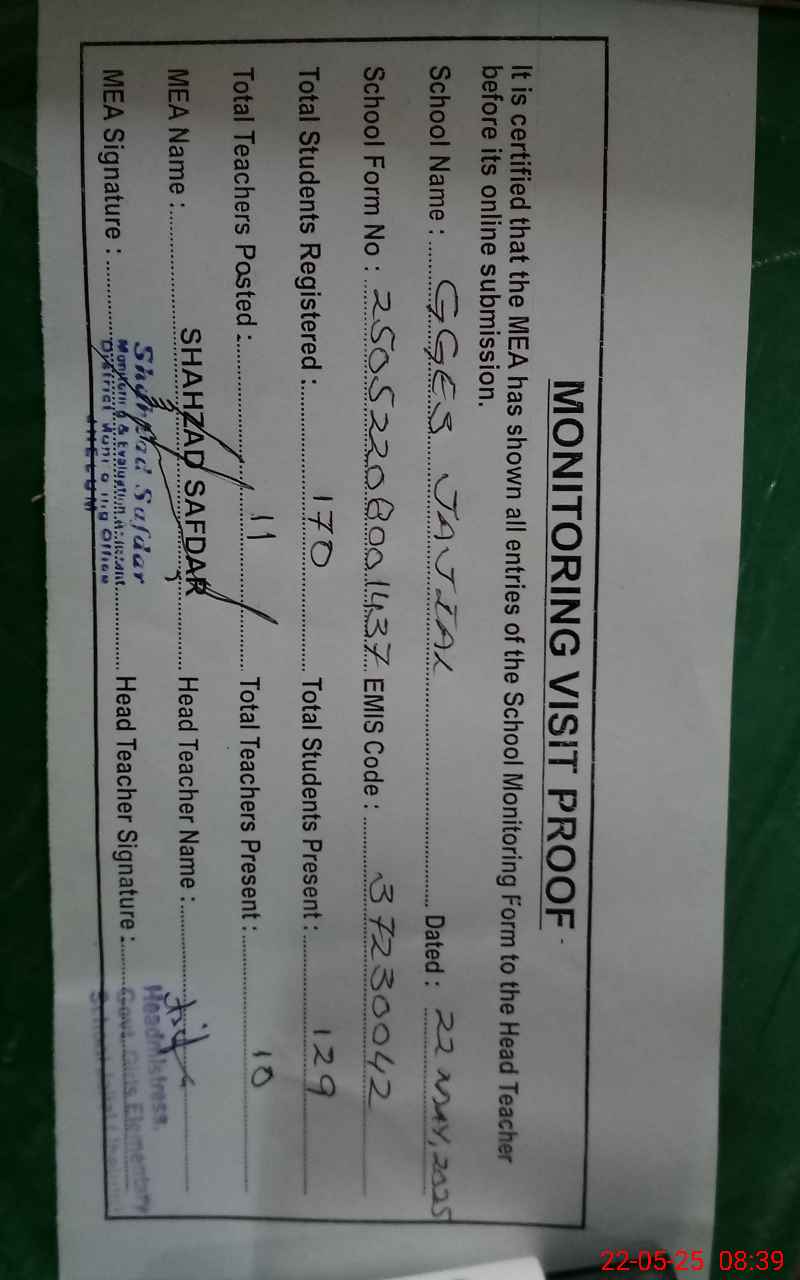 MONITORING VISIT PROOF
It is certified that the MEA has shown all entries of the School Monitoring Form to the Head Teacher
before its online submission.
School Name : GGES JAJIAL Dated : 22 MAY, 2025
School Form No : 25052208001437 EMIS Code : 37230042
Total Students Registered : 170 Total Students Present : 129
Total Teachers Posted : 11 Total Teachers Present : 10
MEA Name : SHAHZAD SAFDAR Head Teacher Name :
MEA Signature : Head Teacher Signature :
Shahzad Safdar
Monitoring & Evaluation Assistant
District Monitoring Office
JHELUM
Headmistress,
Govt. Girls Elementary
School
22-05-25 08:39